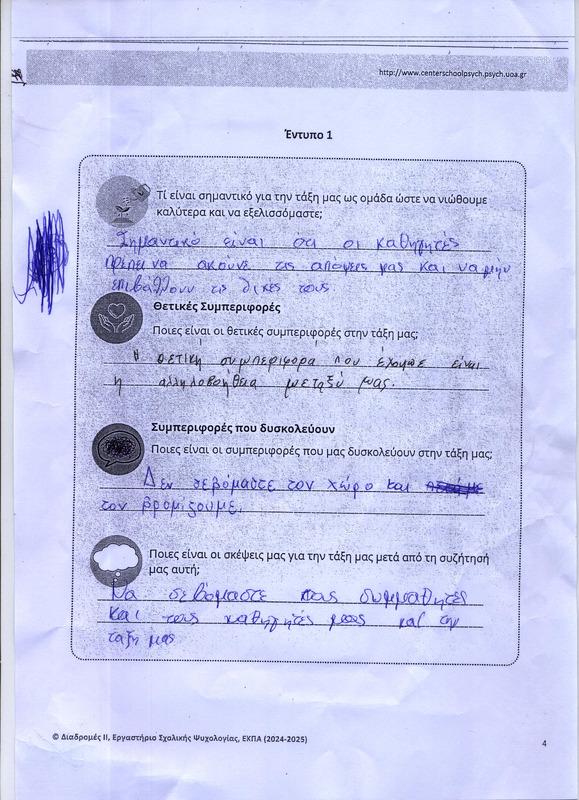 http://www.centerschoolpsych.psych.uoa.gr
Έντυπο 1
Τί είναι σημαντικό για την τάξη μας ως ομάδα ώστε να νιώθουμε
καλύτερα και να εξελισσόμαστε;
Σημαντικό είναι οτι οι καθηγητές
πρέπει να ακούνε τις απόψεις μας και να μην
επιβάλλουν τις δικές τους
Θετικές Συμπεριφορές
Ποιες είναι οι θετικές συμπεριφορές στην τάξη μας;
Η θετική συμπεριφορα που εχουμε είναι
η αλληλοβοήθεια μεταξύ μας.
Συμπεριφορές που δυσκολεύουν
Ποιες είναι οι συμπεριφορές που μας δυσκολεύουν στην τάξη μας;
Δεν σεβόμαστε τον χώρο και
τον βρομίζουμε.
Ποιες είναι οι σκέψεις μας για την τάξη μας μετά από τη συζήτησή
μας αυτή;
Να σεβόμαστε τους συμμαθητές
και τους καθηγητές μας και την
ταξη μας
© Διαδρομές ΙΙ, Εργαστήριο Σχολικής Ψυχολογίας, ΕΚΠΑ (2024-2025)
4